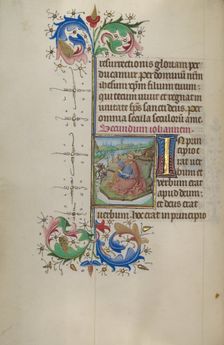 resurrectionis gloriam per
ducamur per dominum nrm
ihesum xpm filium tuum
qui tecum vivit et regnat in
unitate sps sancti deus per
omnia secula seculorum ame
Secundum iohannem
In prin
cipio e
rat ver
bum et
verbum erat
apud deum
et deus erat
verbum hoc erat in principio